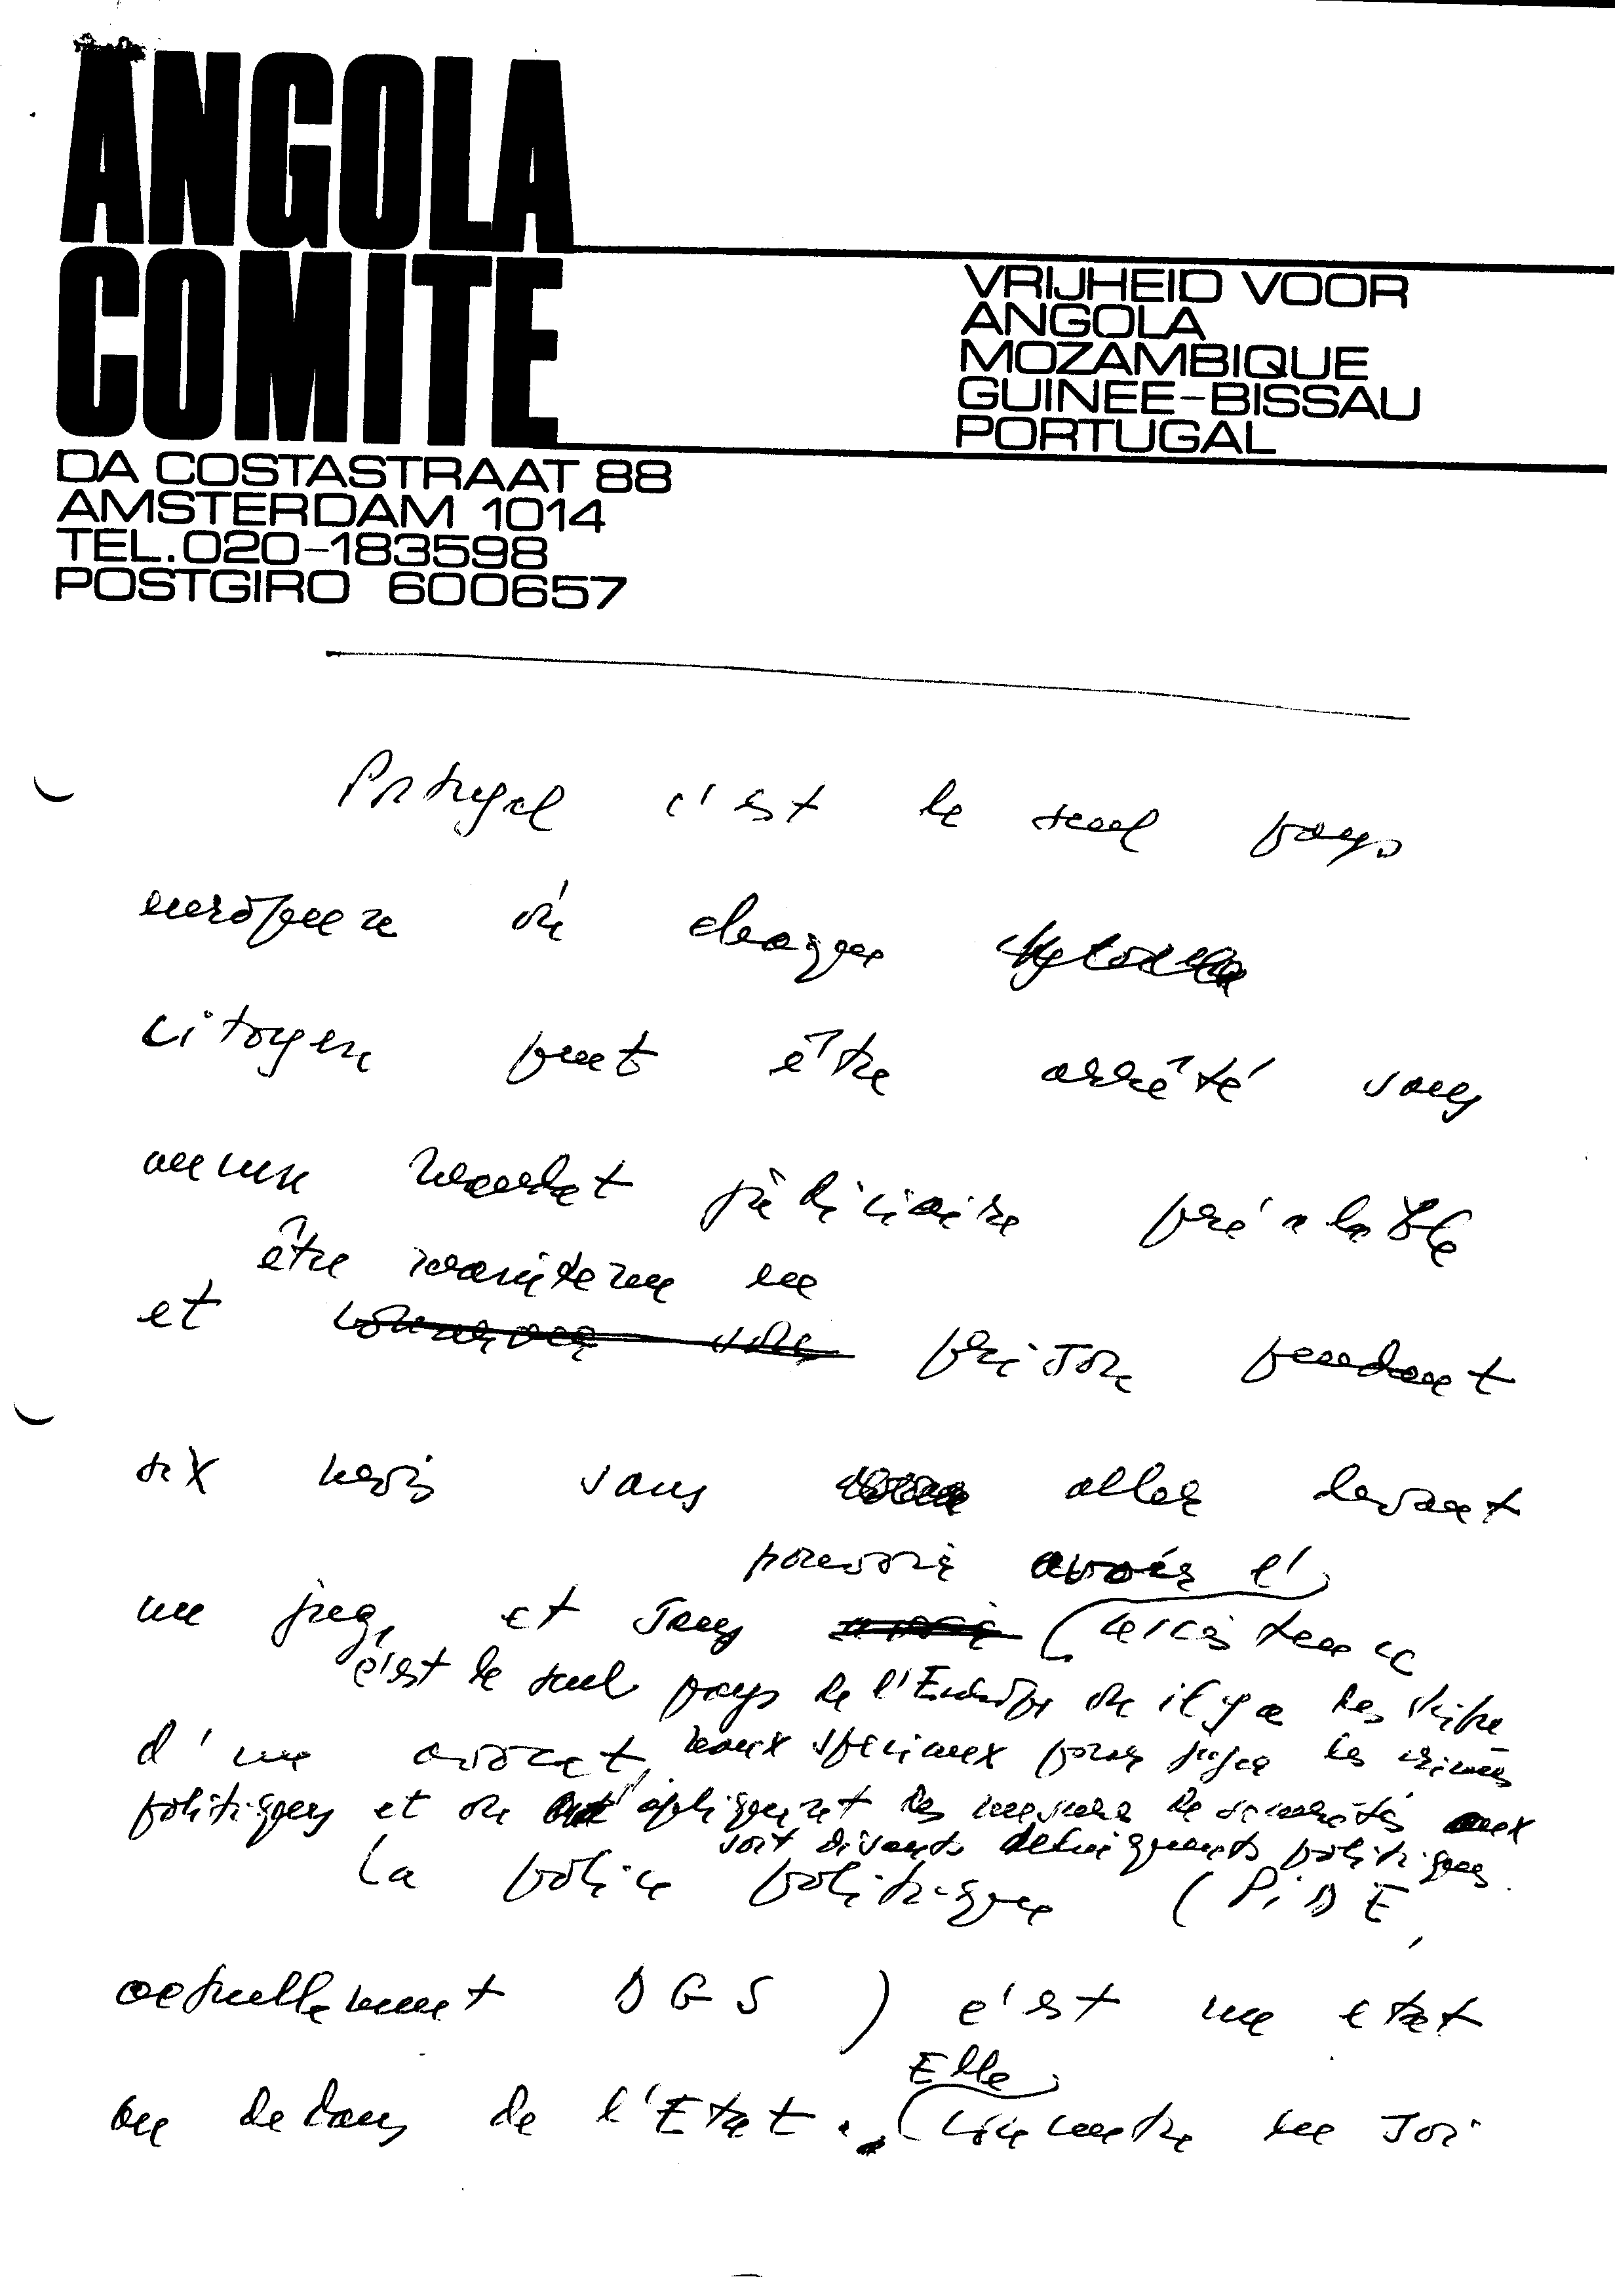 ANGOLA
COMITE
VRIJHEID VOOR
ANGOLA
MOZAMBIQUE
GUINEE-BISSAU
PORTUGAL
DA COSTASTRAAT 88
AMSTERDAM 1014
TEL.020-183598
POSTGIRO 600657
Portugal c'est le seul pays
européen où chaque
citoyen peut être arrêté sans
aucun mandat judiciaire préalable
être maintenu en
et prison pendant
six mois sans aller devant
pouvoir avoir l'
un juge et sans assistence
c'est le seul pays de l'Europe où il y a des tribu
d'un avocat,
naux speciaux pour juger les crimes
politiques et où appliquent des mesures de securité aux
soit disants delinquants politiques.
La police politique (PIDE,
actuellement DGS) c'est un etat
au dedans de l'Etat. Elle
concentre en soi